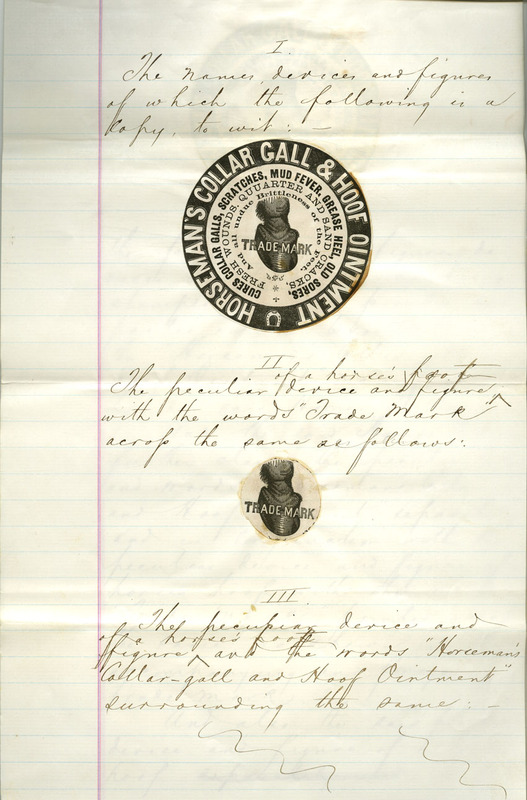 I.
The names, devices and figures
of which the following is a
Copy, to wit: —
HORSEMAN'S COLLAR GALL & HOOF OINTMENT
CURES COLLAR GALLS, SCRATCHES, MUD FEVER, GREASE HEEL, OLD SORES,
FRESH WOUNDS, QUUARTER AND SAND CRACKS,
And all undue Brittleness of the Feet.
TRADE MARK
II
of a horse's foot
The peculiar device and figure
with the words "Trade Mark"
across the same as follows:
TRADE MARK
III.
The peculiar device and
of a horse's foot
figure and the words "Horseman's
Collar-gall and Hoof Ointment"
surrounding the same: —